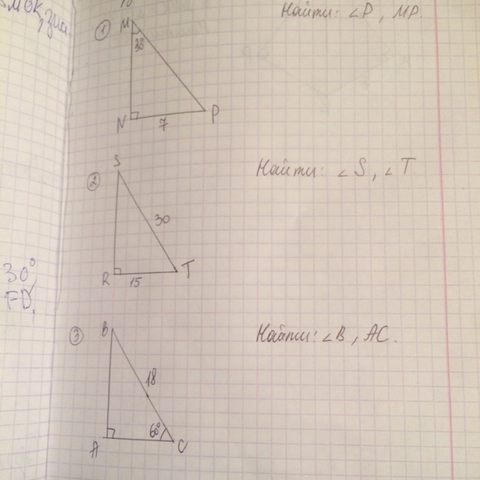 ① M Найти: ∠P, MP.
38
N 7 P
② S Найти: ∠S, ∠T
30
30°
FD,
R 15 T
③ B Найти: ∠B, AC.
18
60°
A C